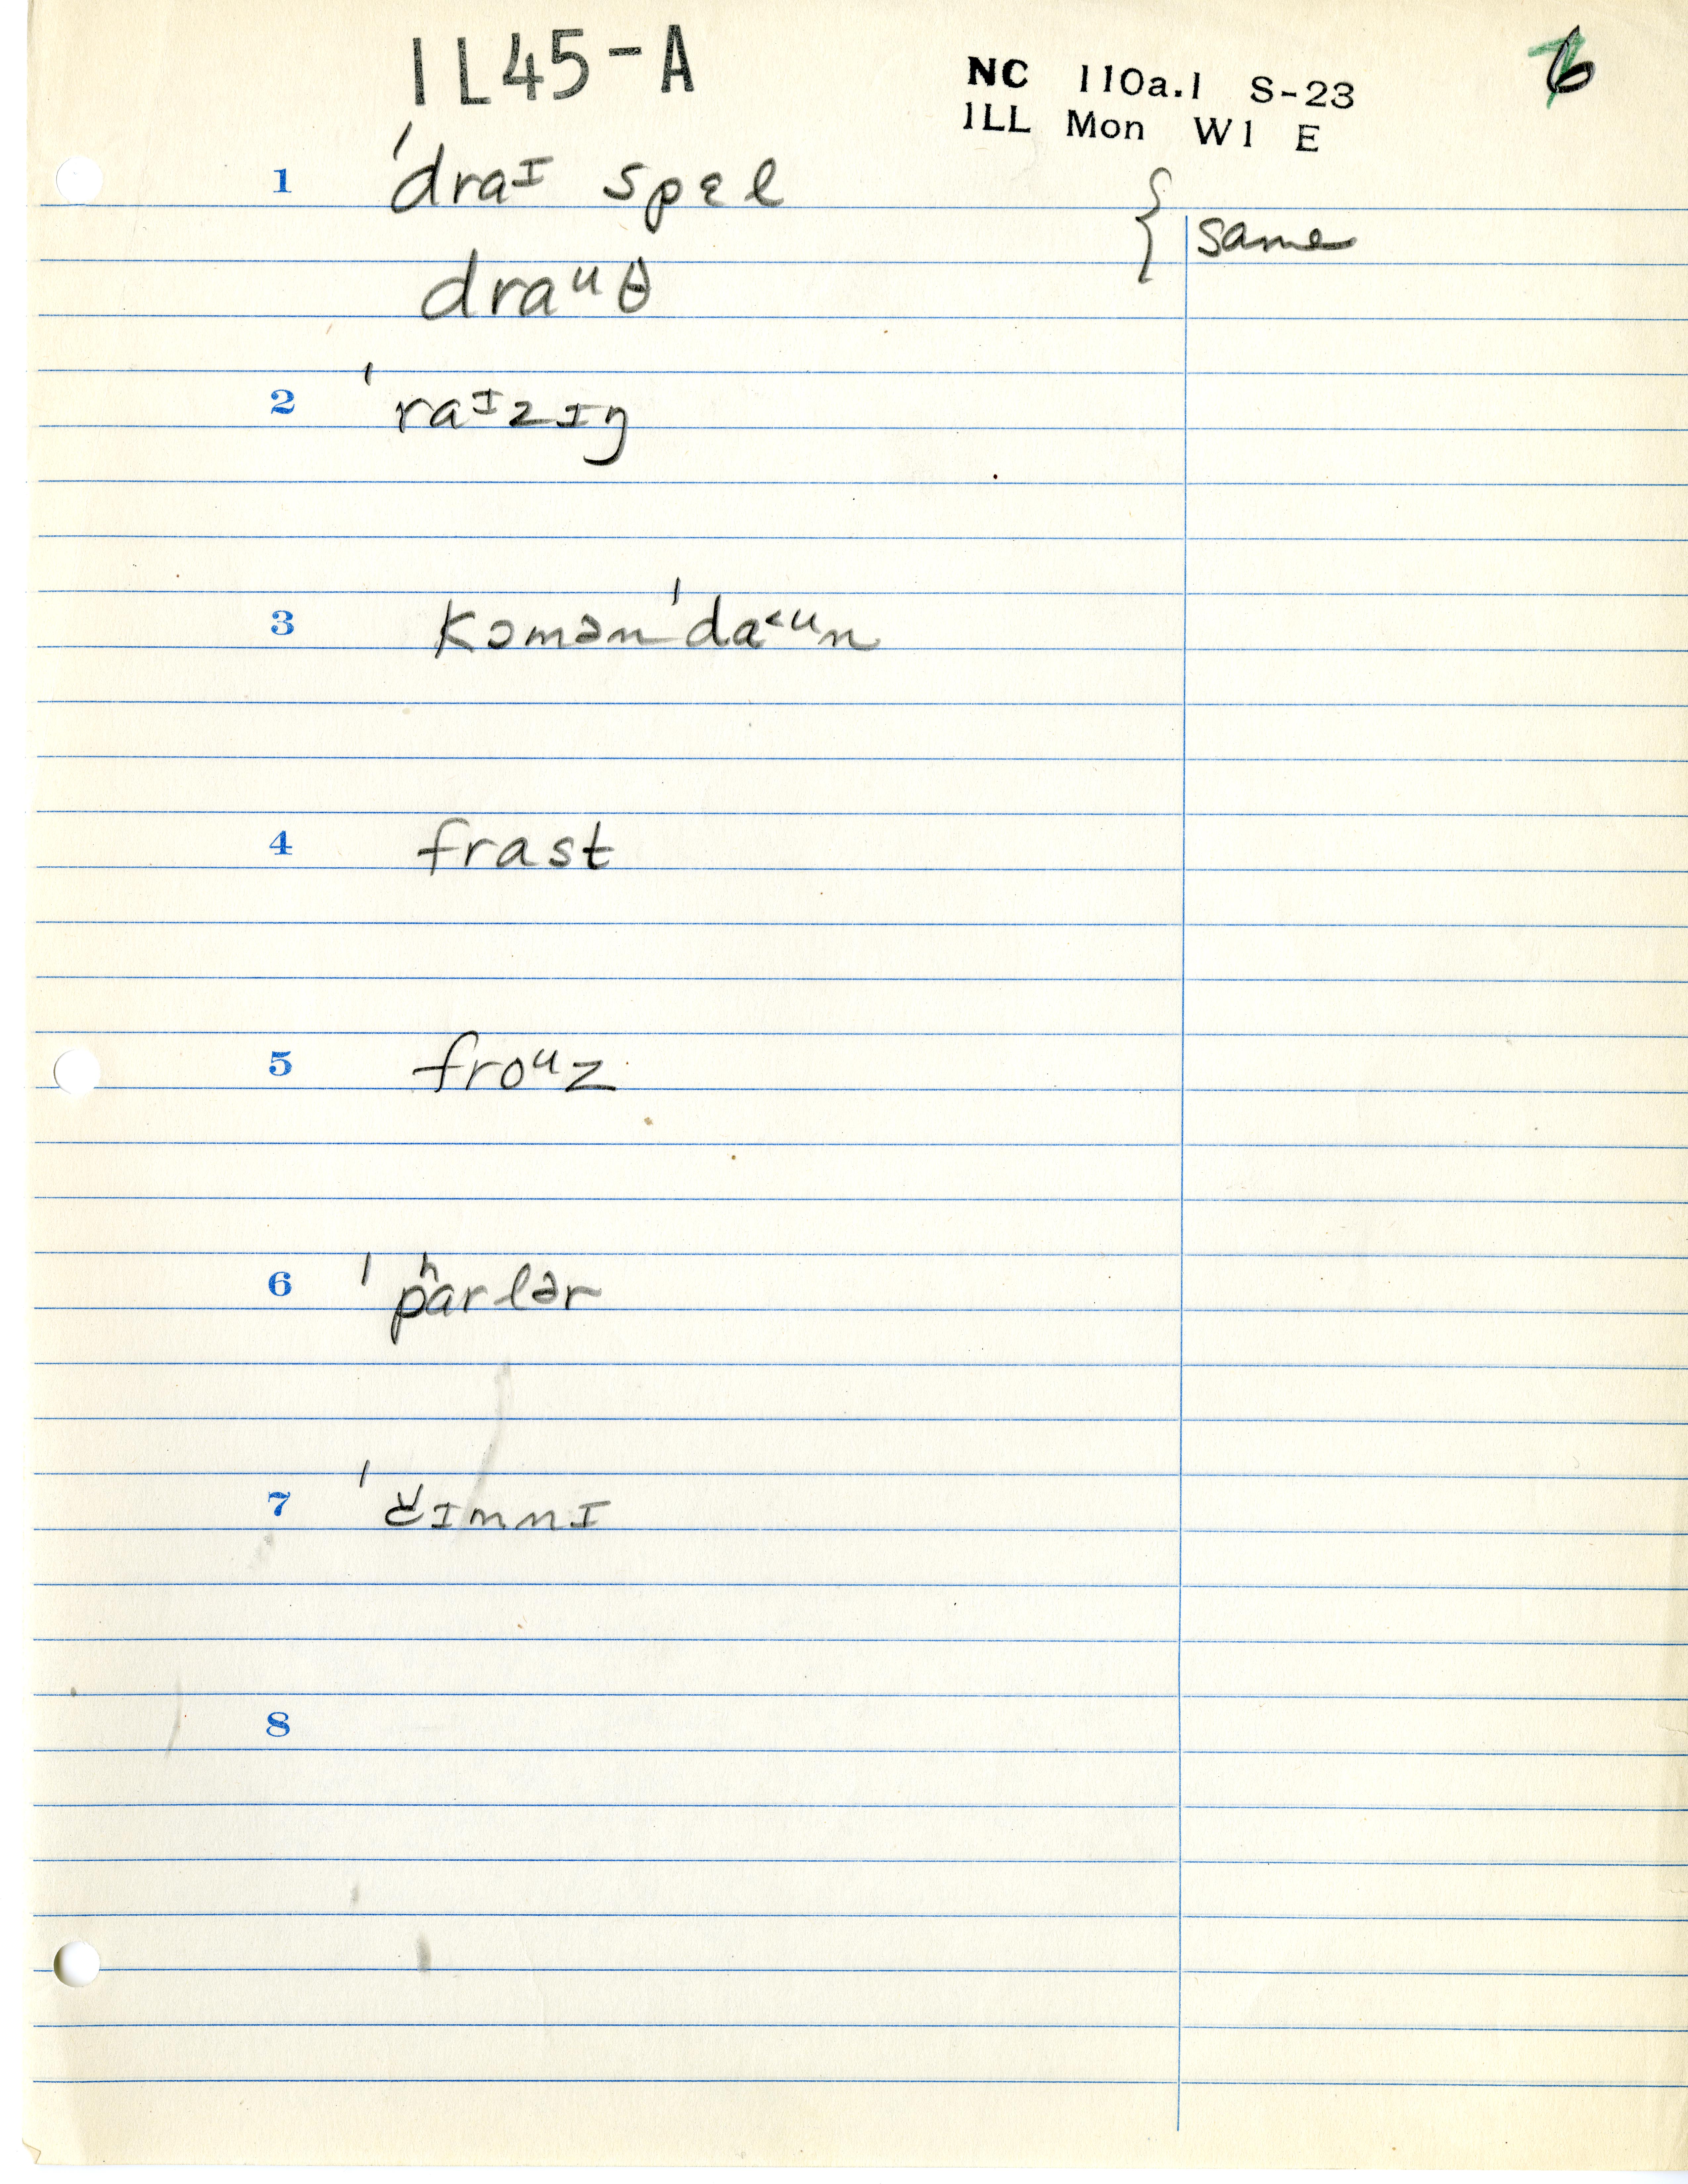 IL45-A
NC 110a.1 S-23
ILL Mon W1 E
6
1 ˈdraᶦ spɛl
{ same
draᵘθ
2 ˈraᶦzɪŋ
3 kəmənˈdaᵘn
4 frast
5 froᵘz
6 ˈpʰarlər
7 ɪmnɪ
8